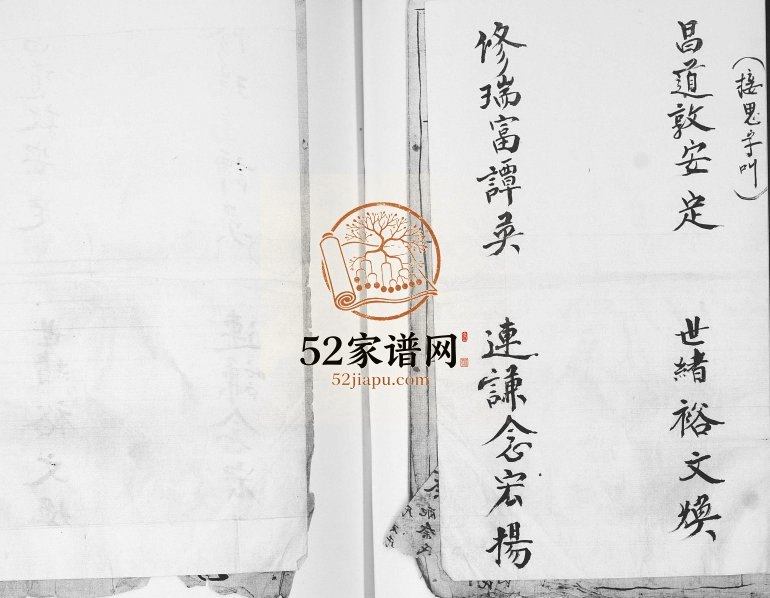 （接思字叫）
昌道敦安定 世緒裕文煥
修瑞富譚英 連謙念宏揚
52家谱网
52jiapu.com